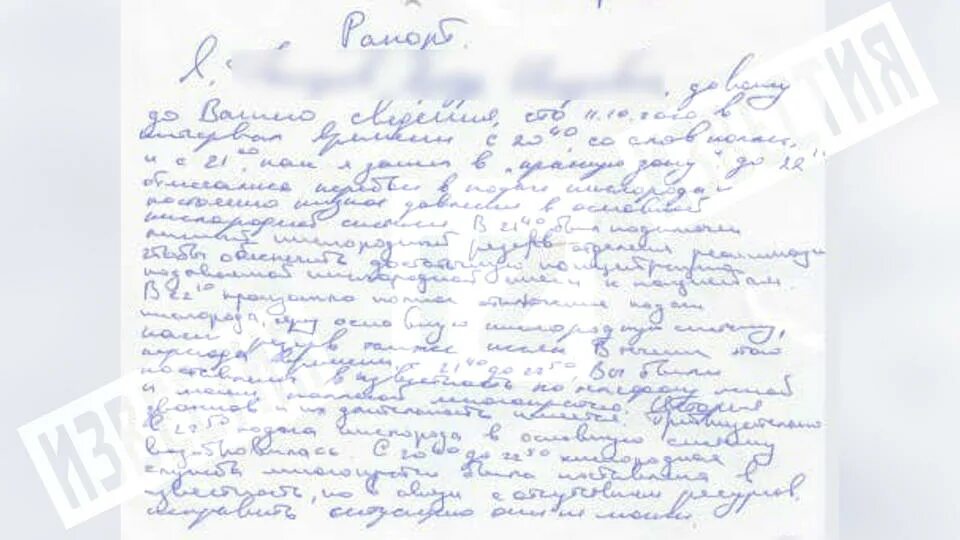 Рапорт.
Я, довожу
до Вашего сведения, что 11.10. 2020 в
интервал времени с 20⁴⁰ со слов коллег,
и с 21⁰⁰ как я зашел в "красную зону" до 22
отмечались перебои в подаче кислорода, и
постоянно низкое давление в основной
кислородной системе. В 21⁴⁰ был подключен
кислородный резерв отделения реанимации
чтобы обеспечить достаточную концентрацию
подаваемой кислородной смеси к пациентам.
В 22¹⁰ произошло полное отключение подачи
кислорода через основную кислородную систему,
наш резерв также иссяк. В течении этого
периода времени с 21⁴⁰ до 22⁵⁰, Вы были
поставлены в известность по телефону мной
и моими коллегами многократно.
звонков и их длительность имеется. Приблизительно
в 22⁵⁰ подача кислорода в основную систему
возобновилась. С 20⁴⁰ до 22⁵⁰ кислородная
служба многократно была поставлена в
известность, но в связи с отсутствием ресурсов,
исправить ситуацию они не могли.
ИЗВЕСТИЯ